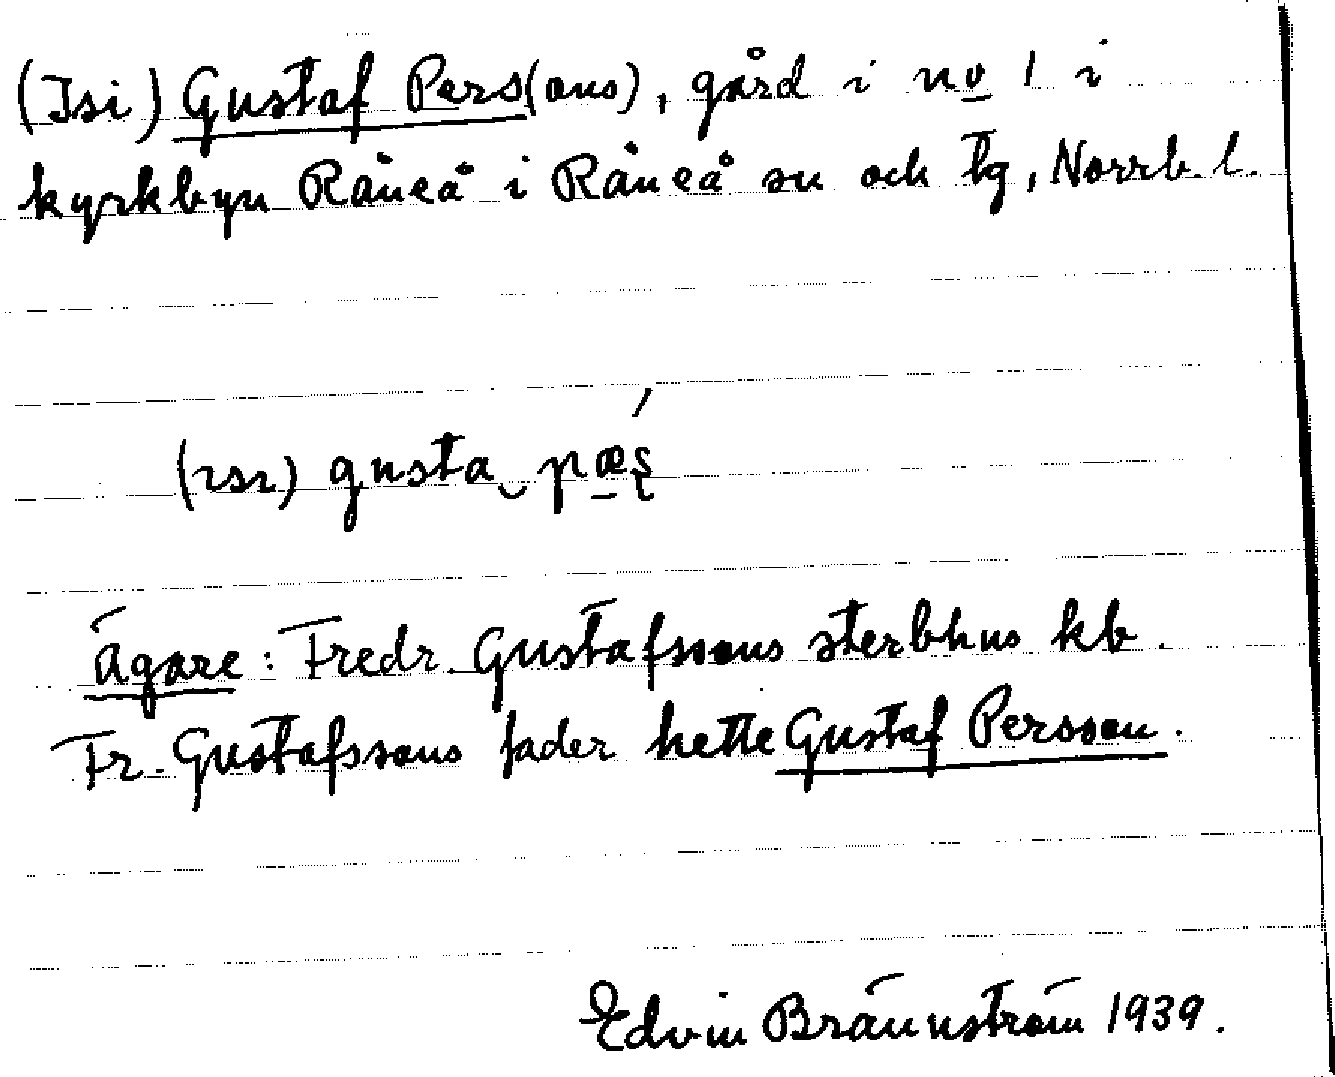 (Isi) Gustaf Pers(ons), gård i no 1 i
kyrkbyn Råneå i Råneå sn och tg, Norrb. l.
(ısı) gusta‿pæş ́
Ägare: Fredr. Gustafssons sterbhus kb.
Fr. Gustafssons fader hette Gustaf Persson.
Edvin Brännström 1939.